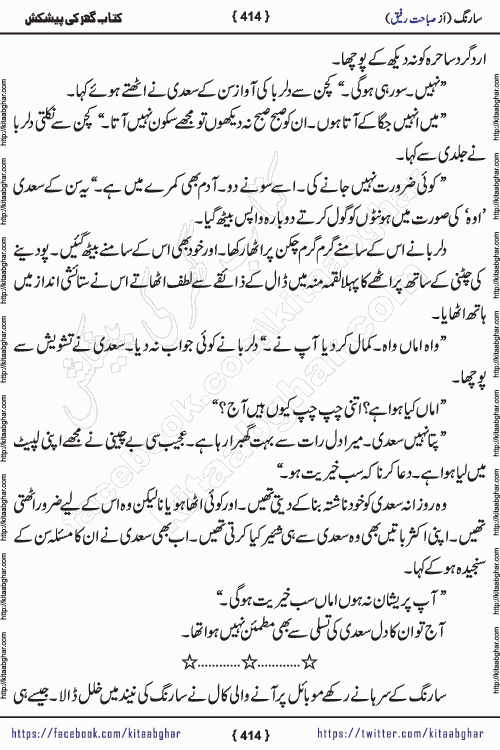 سارنگ (از صباحت رفیق)
{ 414 }
کتاب گھر کی پیشکش
اردگرد ساحرہ کو نہ دیکھ کے پوچھا۔
”نہیں۔ سو رہی ہوگی۔“ کچن سے دلربا کی آواز سن کے سعدی نے اٹھتے ہوئے کہا۔
”میں انہیں جگا کے آتا ہوں۔ ان کو صبح صبح نہ دیکھوں تو مجھے سکون نہیں آتا۔“ کچن سے نکلتی دلربا
نے جلدی سے کہا۔
”کوئی ضرورت نہیں جانے کی۔ اسے سونے دو۔ آدم بھی کمرے میں ہے۔“ یہ سن کے سعدی
’اوہ‘ کی صورت میں ہونٹوں کو گول کرتے دوبارہ واپس بیٹھ گیا۔
دلربا نے اس کے سامنے گرم گرم چکن پراٹھا رکھا۔ اور خود بھی اس کے سامنے بیٹھ گئیں۔ پودینے
کی چٹنی کے ساتھ پراٹھے کا پہلا لقمہ منہ میں ڈال کے ذائقے سے لطف اٹھاتے اس نے ستائشی انداز میں
ہاتھ اٹھایا۔
”واہ اماں واہ۔ کمال کر دیا آپ نے۔“ دلربا نے کوئی جواب نہ دیا۔ سعدی نے تشویش سے
پوچھا۔
”اماں کیا ہوا ہے؟ اتنی چپ چپ کیوں ہیں آج؟“
”پتا نہیں سعدی۔ میرا دل رات سے بہت گھبرا رہا ہے۔ عجیب سی بے چینی نے مجھے اپنی لپیٹ
میں لیا ہوا ہے۔ دعا کرنا کہ سب خیریت ہو۔“
وہ روزانہ سعدی کو خود ناشتہ بنا کے دیتی تھیں۔ اور کوئی اٹھا ہو یا نا لیکن وہ اس کے لیے ضرور اٹھتی
تھیں۔ اپنی اکثر باتیں بھی وہ سعدی سے ہی شیئر کیا کرتی تھیں۔ اب بھی سعدی نے ان کا مسئلہ سن کے
سنجیدہ ہو کے کہا۔
”آپ پریشان نہ ہوں اماں سب خیریت ہوگی۔“
آج تو ان کا دل سعدی کی تسلی سے بھی مطمئن نہیں ہوا تھا۔
☆............☆............☆
سارنگ کے سرہانے رکھے موبائل پر آنے والی کال نے سارنگ کی نیند میں خلل ڈالا۔ جیسے ہی
https://facebook.com/kitaabghar
{ 414 }
https://twitter.com/kitaabghar
http://kitaabghar.com
کتاب گھر کی پیشکش
facebook.com/kitaabghar
kitaabghar.com